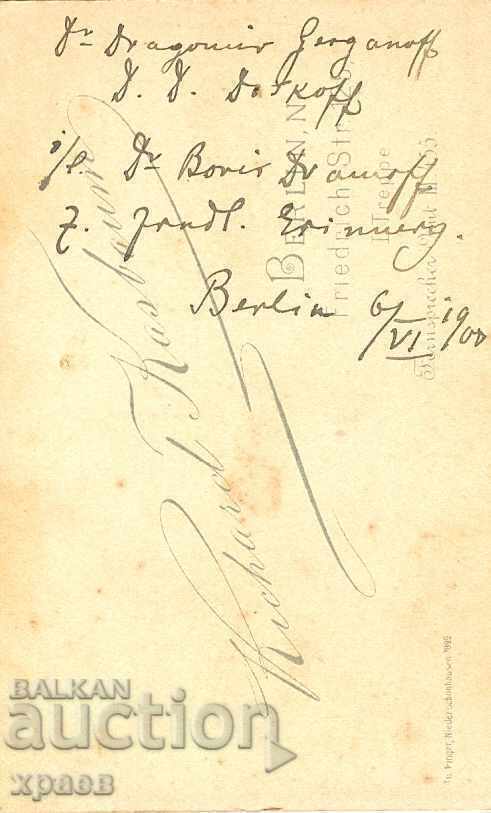 Dr Dragomir Gerganoff
D. D. Daskoff
i/l. Dr Boris Dramoff
z. frndl. Erinnerg.
Berlin 6/VI 1900
Richard Kasbaum
BERLIN, N.
Friedrich-Str.
II Treppe
Fernsprecher Amt III
Niederschönhausen
BALKAN
auction
храев